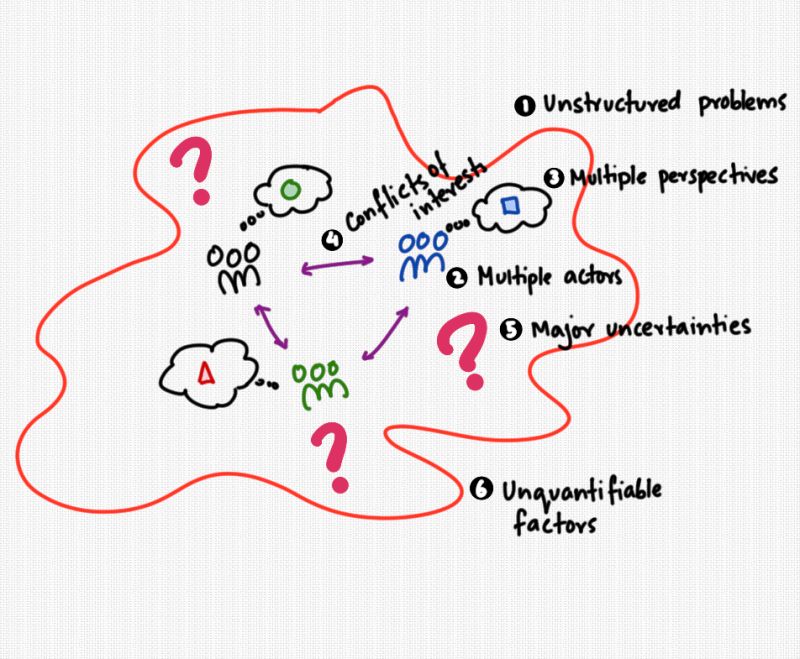 1 Unstructured problems
3 Multiple perspectives
4 Conflicts of
interests
2 Multiple actors
5 Major uncertainties
6 Unquantifiable
factors
?
?
?